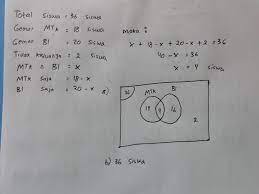 Total siswa = 36 siswa
Gemar MTK = 18 siswa
Gemar BI = 20 siswa
Tidak keduanya = 2 siswa
MTK ∩ BI = x
MTK saja = 18 - x
BI saja = 20 - x
maka :
x + 18 - x + 20 - x + 2 = 36
40 - x = 36
x = 4 siswa
a)
36
MTK BI
4 16
2
b) 36 siswa